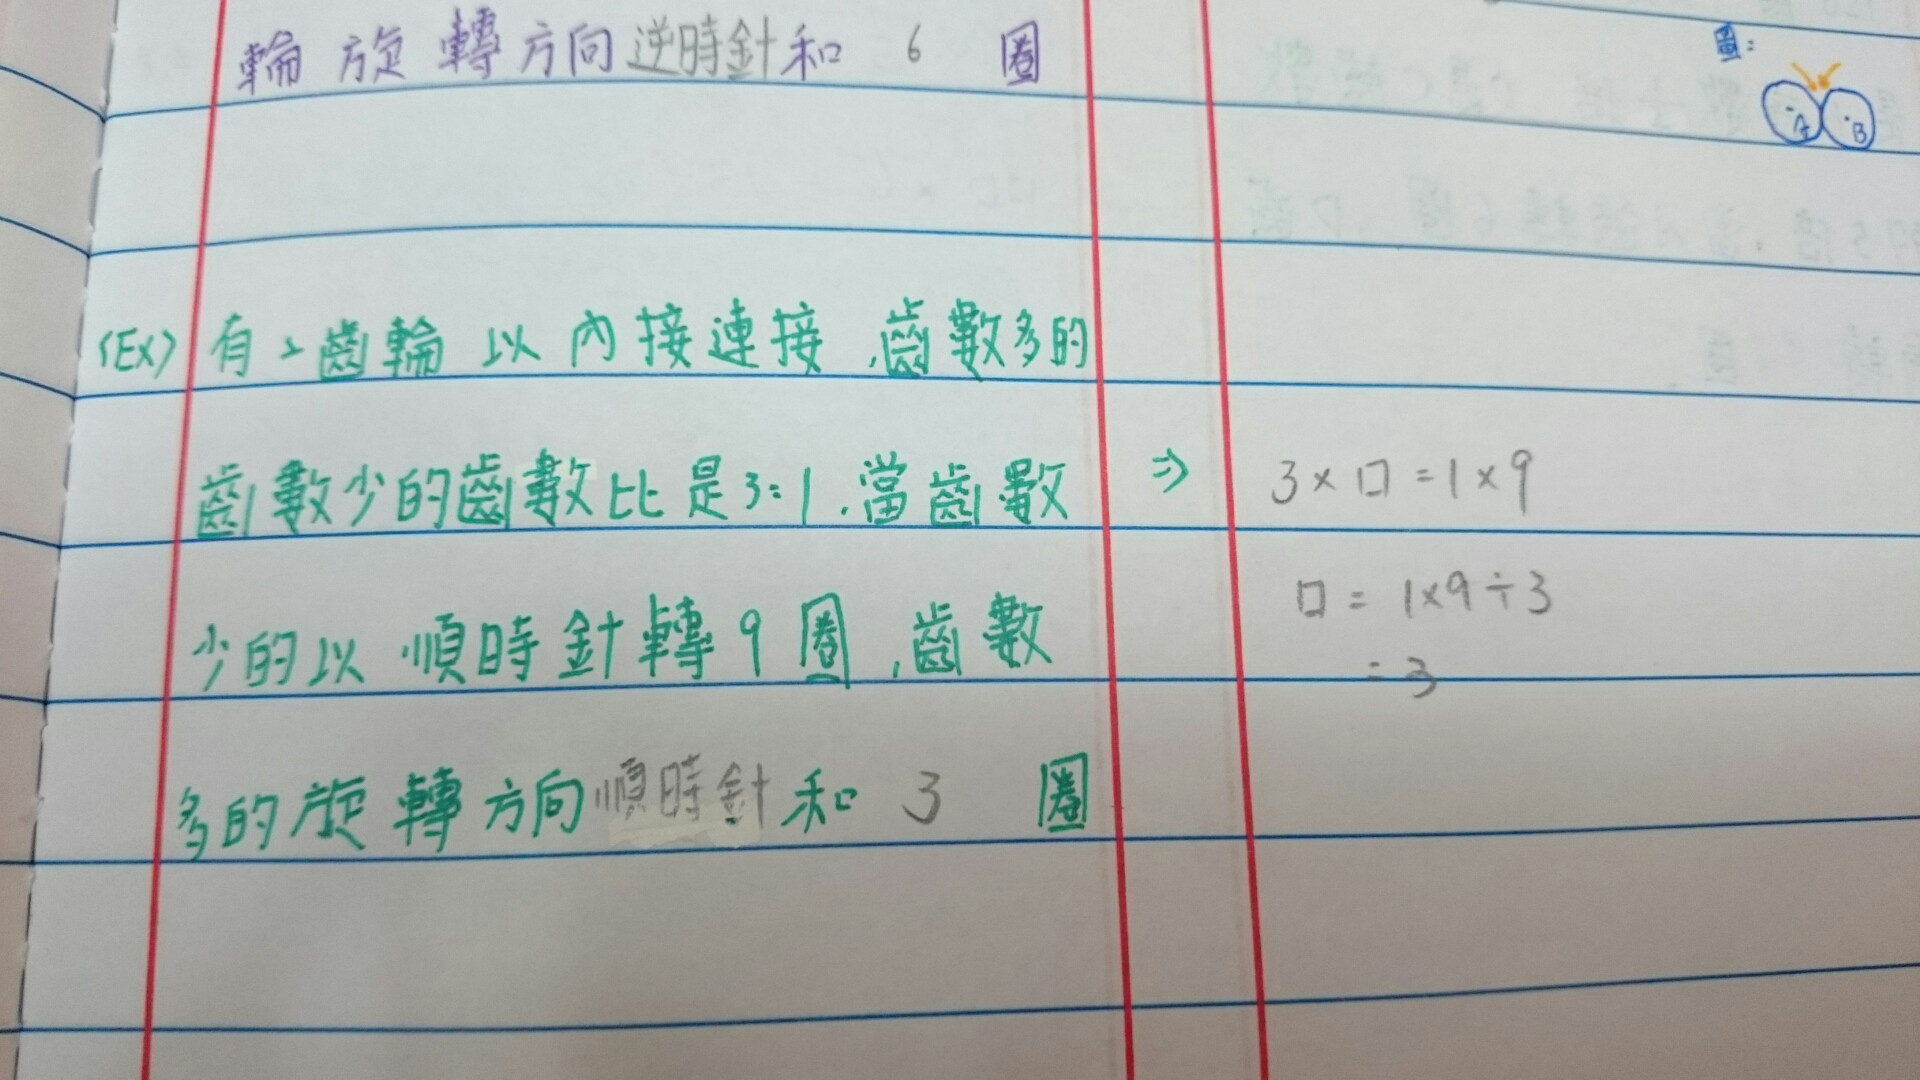 輪旋轉方向逆時針和 6 圈
圖:
A B
<EX> 有2齒輪以內接連接,齒數多的
齒數少的齒數比是3:1.當齒數
⇒ 3×口=1×9
少的以順時針轉9圈,齒數
口=1×9÷3
=3
多的旋轉方向順時針和 3 圈